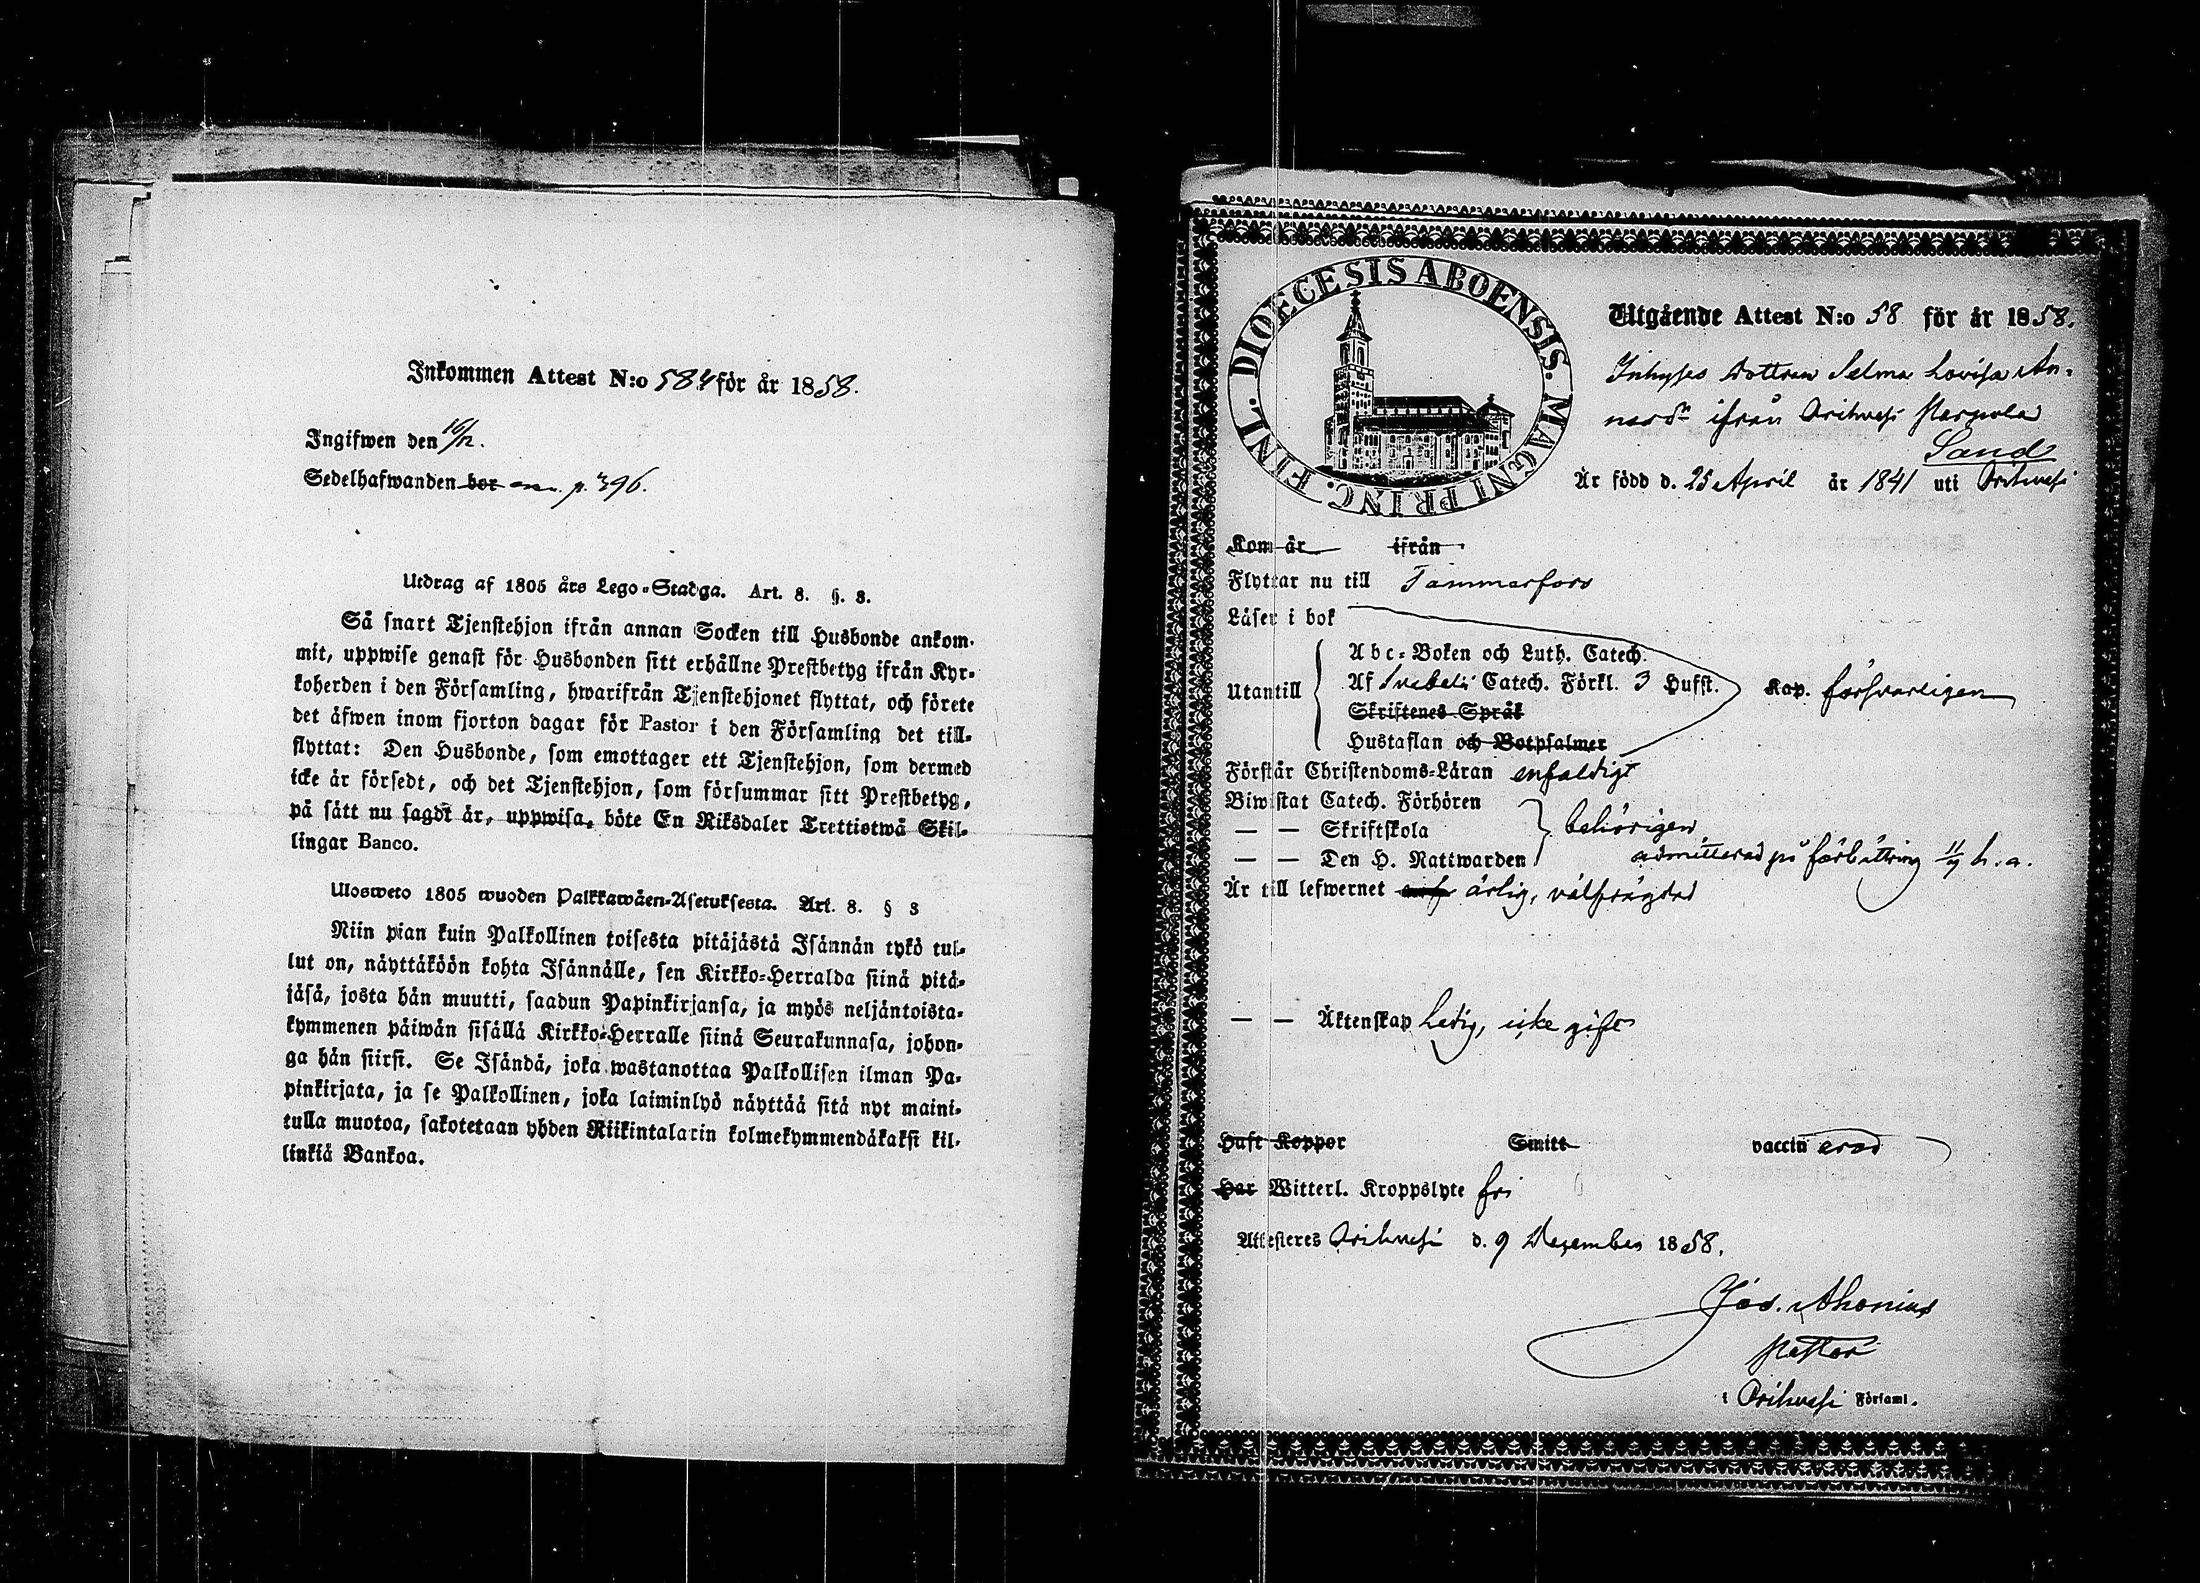 Inkommen Attest N:o 584 för år 1858.
Ingifwen den 16/12.
Sedelhafwanden bor p. 396.
Utdrag af 1805 års Lego-Stadga. Art. 8. §. 8.
Så snart Tjenstehjon ifrån annan Socken till Husbonde ankom-
mit, uppwise genast för Husbonden sitt erhållne Prestbetyg ifrån Kyr-
koherden i den Församling, hwarifrån Tjenstehjonet flyttat, och förete
det äfwen inom fjorton dagar för Pastor i den Församling det till-
flyttat: Den Husbonde, som emottager ett Tjenstehjon, som dermed
icke är försedt, och det Tjenstehjon, som försummar sitt Prestbetyg,
på sätt nu sagdt är, uppwisa, böte En Riksdaler Trettiotwå Skil-
lingar Banco.
Ulosweto 1805 wuoden Palkkawäen-Asetuksesta. Art. 8. § 8
Niin pian kuin Palkollinen toisesta pitäjästä Isännän tykö tul-
lut on, näyttäköön kohta Isännälle, sen Kirkko-Herralda siinä pitä-
jäsä, josta hän muutti, saadun Papinkirjansa, ja myös neljäntoista-
kymmenen päiwän sisällä Kirkko-Herralle siinä Seurakunnasa, johon-
ga hän siirsi. Se Isändä, joka wastanottaa Palkollisen ilman Pa-
pinkirjata, ja se Palkollinen, joka laiminlyö näyttää sitä nyt maini-
tulla muotoa, sakotetaan yhden Riikintalarin kolmekymmendäkaksi kil-
linkiä Bankoa.
DIOECESIS ABOENSIS. MAGNI PRINC. FINL.
Utgående Attest N:o 58 för år 1858.
Inhyses dottren Selma Lovisa An-
ifrån Orihvesi
Sand
Är född d. 25 April år 1841 uti Orihvesi
Kom år ifrån
Flyttar nu till Tammerfors
Läser i bok
Utantill
Abc-Boken och Luth. Catech.
Af Svebelii Catech. Förkl. 3 Hufst.
Skriftenes Språk
Hustaflan och Botpsalmer
Kap. försvarligen
Förstår Christendoms-Läran enfaldigt
Biwistat Catech. Förhören
— — Skriftskola behörigen
— — Den H. Nattwarden admitterad på förbättring 11/7 h. a.
Är till lefwernet ärlig, välfrägdad
— — Äktenskap Ledig, icke gift
Haft Koppor Smitt vaccinerad
Har Witterl. Kroppslyte fri
Attesteres Orihvesi d. 9 December 1858.
Jos. Ahonius
Pastor
i Orihvesi Församl.